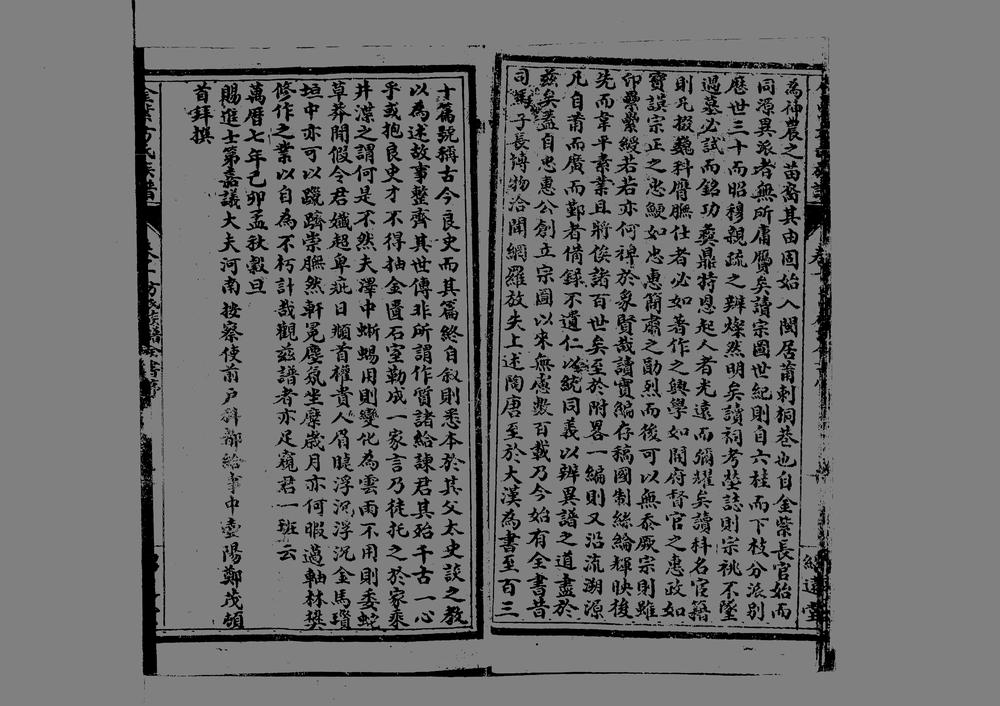 為神農之苗裔其由固始入閩居莆刺桐巷也自金紫長官始而
同源異派者無所庸贋矣讀宗圖世紀則自六桂而下枝分派別
歷世三十而昭穆親疏之辨燦然明矣讀祠考塋誌則宗祧不墜
過墓必試而銘功彝鼎特恩起人者光遠而彌耀矣讀科名宦籍
則凡掇巍科膺膴仕者必如著作之興學如開府督官之惠政如
寶謨宗正之忠鯁如忠惠簡肅之勛烈而後可以無忝厥宗則雖
印纍纍綬若若亦何裨於象賢哉讀實編存稿國制絲綸輝映後
先而韋平素業且將俟諸百世矣至於附畧一編則又沿流溯源
凡自莆而廣而鄞者備錄不遺仁以統同義以辨異譜之道盡於
茲矣蓋自忠惠公創立宗圖以來無慮數百載乃今始有全書昔
司馬子長博物洽聞網羅放失上述陶唐至於大漢為書至百三
十篇號稱古今良史而其篇終自叙則悉本於其父太史談之教
以為述故事整齊其世傳非所謂作質諸給諫君其殆千古一心
乎或抱良史才不得抽金匱石室勒成一家言乃徒托之於家乘
井渫之謂何是不然夫澤中蜥蜴用則變化為雲雨不用則委蛇
草莽間假令君孅趨卑疵日頫首權貴人眉睫浮沉浮沉金馬瓚
垣中亦可以躐躋崇膴然軒冕塵氛坐縻歲月亦何暇邁軸林樊
修作之業以自為不朽計哉觀茲譜者亦足窺君一班云
萬曆七年己卯孟秋穀旦
賜進士第嘉議大夫河南按察使前戶科都給事中壺陽鄭茂頓
首拜撰
金紫方氏族譜